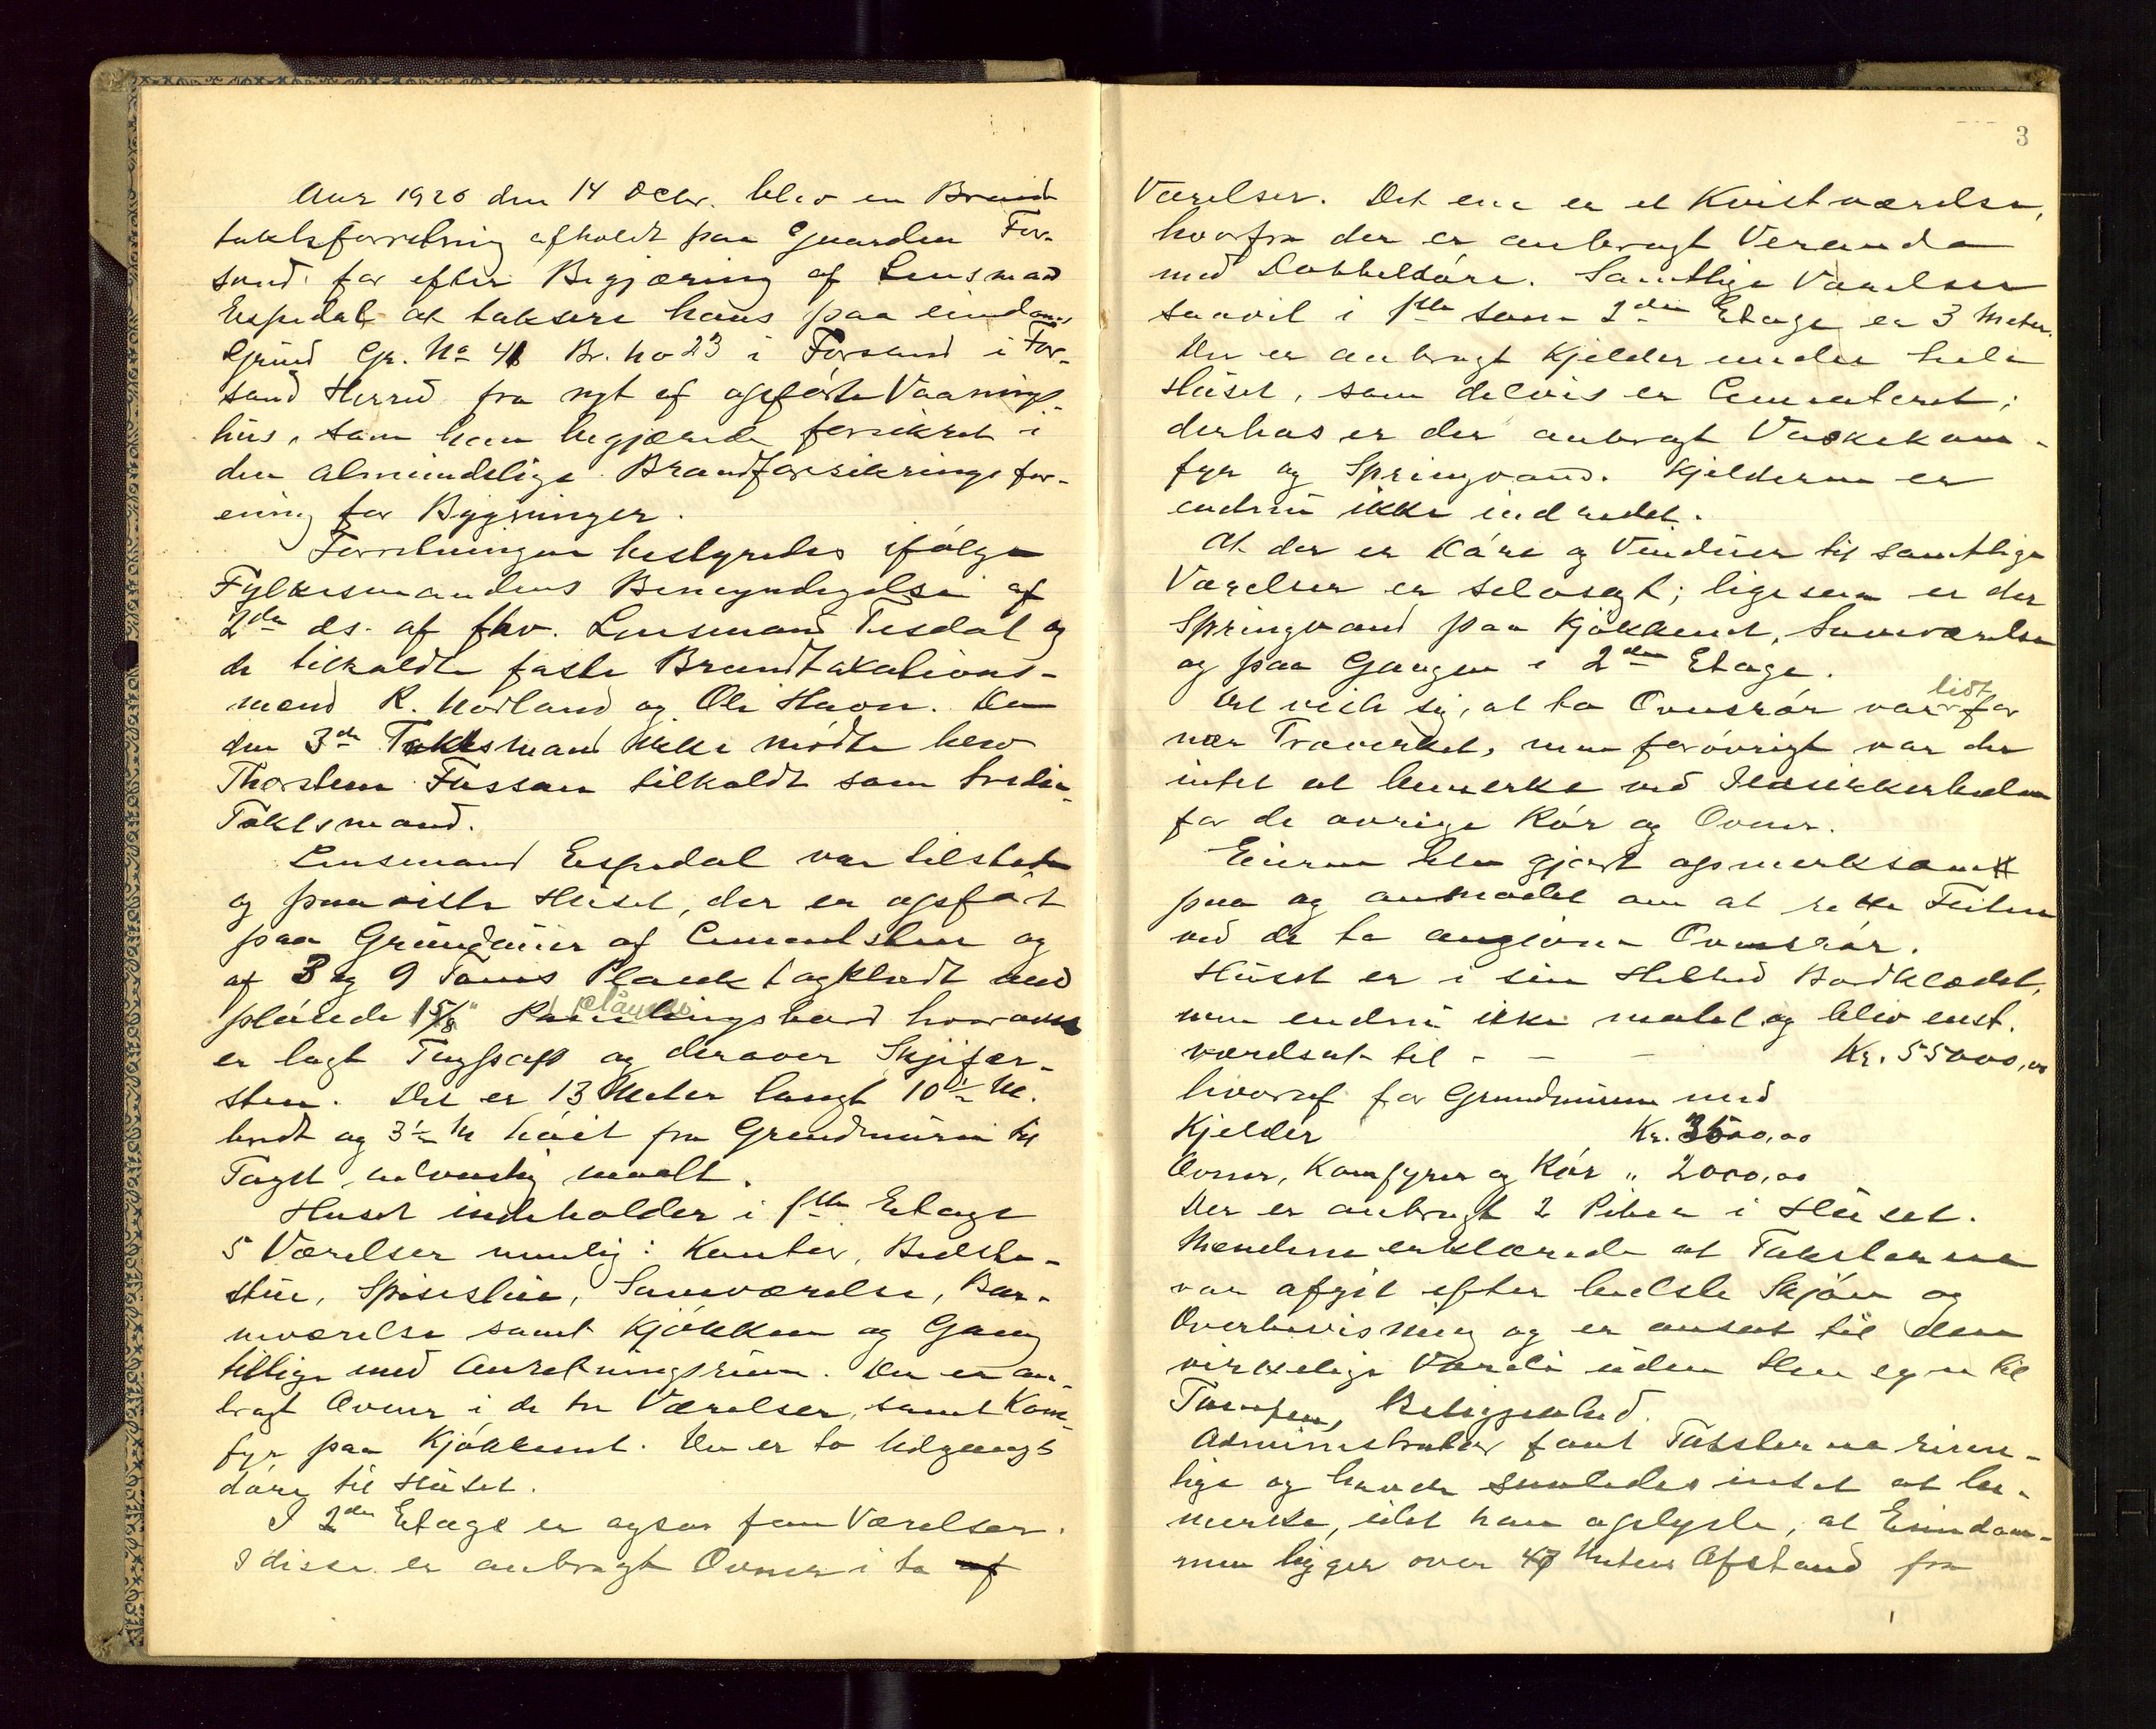 Aar 1920 den 14 Decbr. blev en Brand
takstforretning afholdt paa Gaarden For-
sand for efter Begjæring af Lensmand
Espedal at taksere hans paa eiendoms
Grund Gr. No 41 Br. no 23 i Forsand i For-
sand Herred fra nyt af opførte Vaanings-
hus, som han begjærede forsikret i
den almindelige Brandforsikringsfor-
ening for Bygninger.
Forretningen bestyredes ifølge
Fylkesmandens Bemyndigelse af
2den ds. af fhv. Lensmand Tesdal og
de tilkaldte faste Brandtakstions-
mænd R. Norland og Ole Haon. Da
den 3die Takstmand ikke mødte blev
Thorstein Fossan tilkaldt som tredie
Takstmand.
Lensmand Espedal var tilstede
og paaviste Huset, der er opført
paa Grundmur af Cementsten og
af 3 og 9 Toms Plank tagklædt med
pløiede 1 5/8" Panelingsbord hvorover
pløiede
er lagt Tagpap og derover Skjifer-
sten. Det er 13 Meter langt 10 1/2 M.
bredt og 3 1/2 M høit fra Grundmuren til
Taget, udvendig maalt.
Huset indeholder i 1ste Etage
5 Værelser nemlig: Kontor, Bedste-
stue, Spisestue, Soveværelse, Bar-
neværelse samt Kjøkken og Gang
tillige med Anretningsrum. Der er an-
bragt Ovner i de tre Værelser, samt Kom-
fyr paa Kjøkkenet. Der er to Udgangs
døre til Huset.
I 2den Etage er ogsaa fem Værelser.
I disse er anbragt Ovner i to af
3
Værelser. Det ene er et Kvistværelse,
hvorfra der er anbragt Veranda
med Dobbeldøre. Samtlige Værelser
saavel i 1ste som 2den Etage er 3 Meter.
Der er anbragt Kjelder under hele
Huset, som delvis er Cementeret;
derhos er der anbragt Vaskekom-
fyr og Springvand. Kjelderen er
endnu ikke indredet.
At der er Døre og Vinduer til samtlige
Værelser er selvsagt; ligesom er der
Springvand paa Kjøkkenet, Soveværelse
og paa Gangen i 2den Etage.
Det viste sig, at to Ovnsrør var lidt for
nær Træverket, men forøvrigt var der
intet at bemerke ved Ildsikkerheden
for de øvrige Rør og Ovner.
Eieren blev gjort opmerksom
paa og anmodet om at rette Feilen
ved de to angivne Ovnsrør.
Huset er i sin Helhed Bordklædt,
men endnu ikke malet og blev enst.
værdsat til - - - Kr. 55000,00
hvoraf for Grundmuren med
Kjelder Kr. 3500,00
Ovner, Komfyrer og Rør " 2000,00
Der er anbragt 2 Piber i Huset.
Mændene erklærede at Taksterne
var afgit efter bedste Skjøn og
Overbevisning og er ansat til den
virkelige Værdi uden Hensyn til
Tomten, Beliggenhed.
Administrator fant Taksterne rime-
lige og havde saaledes intet at be-
merke, idet han oplyste, at Eiendom-
men ligger over 47 Meters Afstand fra